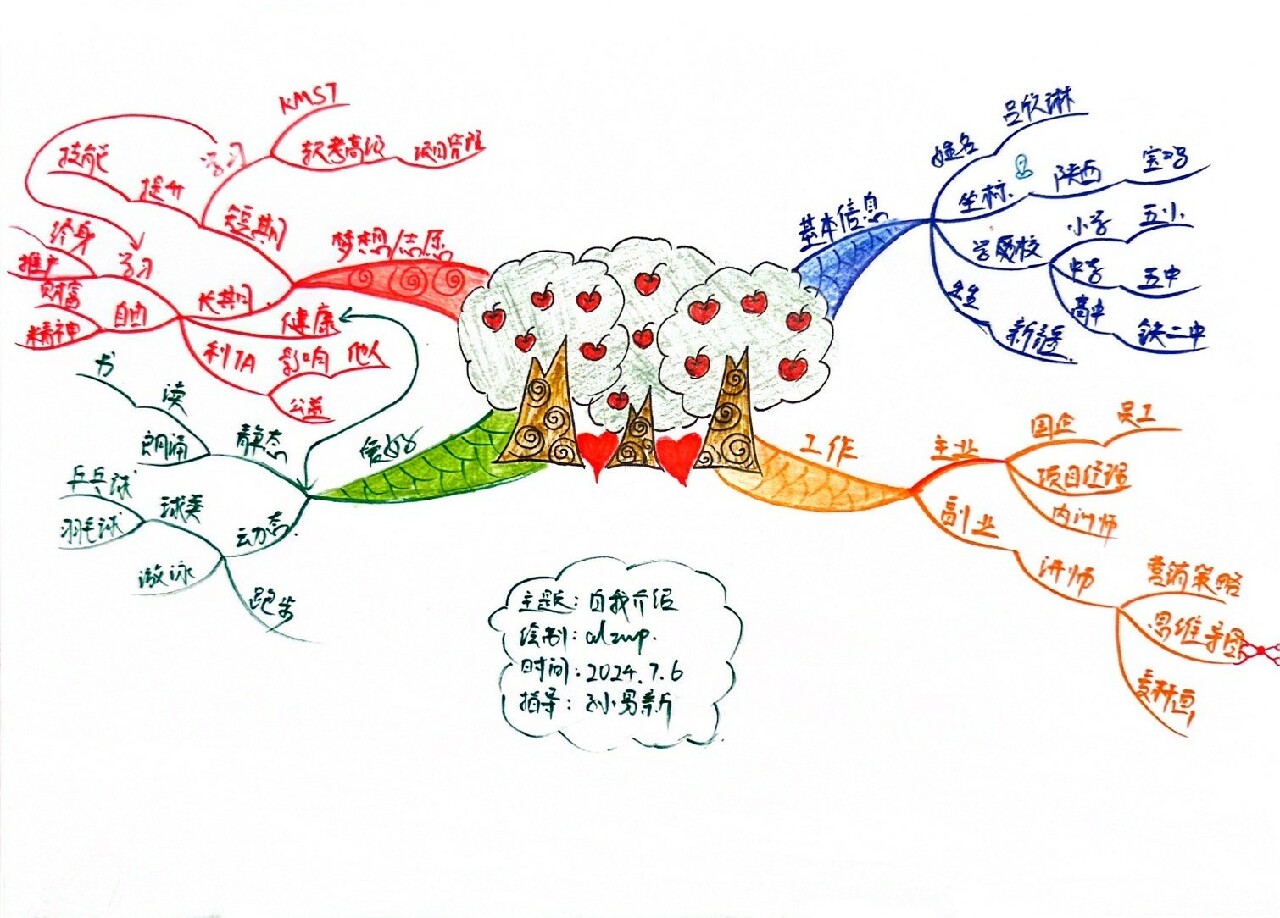 基本信息
姓名
吕欣淋
坐标
陕西
宝鸡
学历校
小学
五小
中学
五中
高中
铁二中
新疆
工作
主业
国企
员工
项目经理
内训师
副业
讲师
营销策略
思维导图
爱好
静态
读
书
朗诵
动态
球类
乒乓球
羽毛球
游泳
跑步
梦想/志愿
短期
学习
KMST
软考高级
项目管理
提升
技能
长期
学习
终身
推广
自由
财富
精神
健康
利TA
影响
他人
公益
主题:自我介绍
绘制:
时间:2024.7.6
指导:孙易新